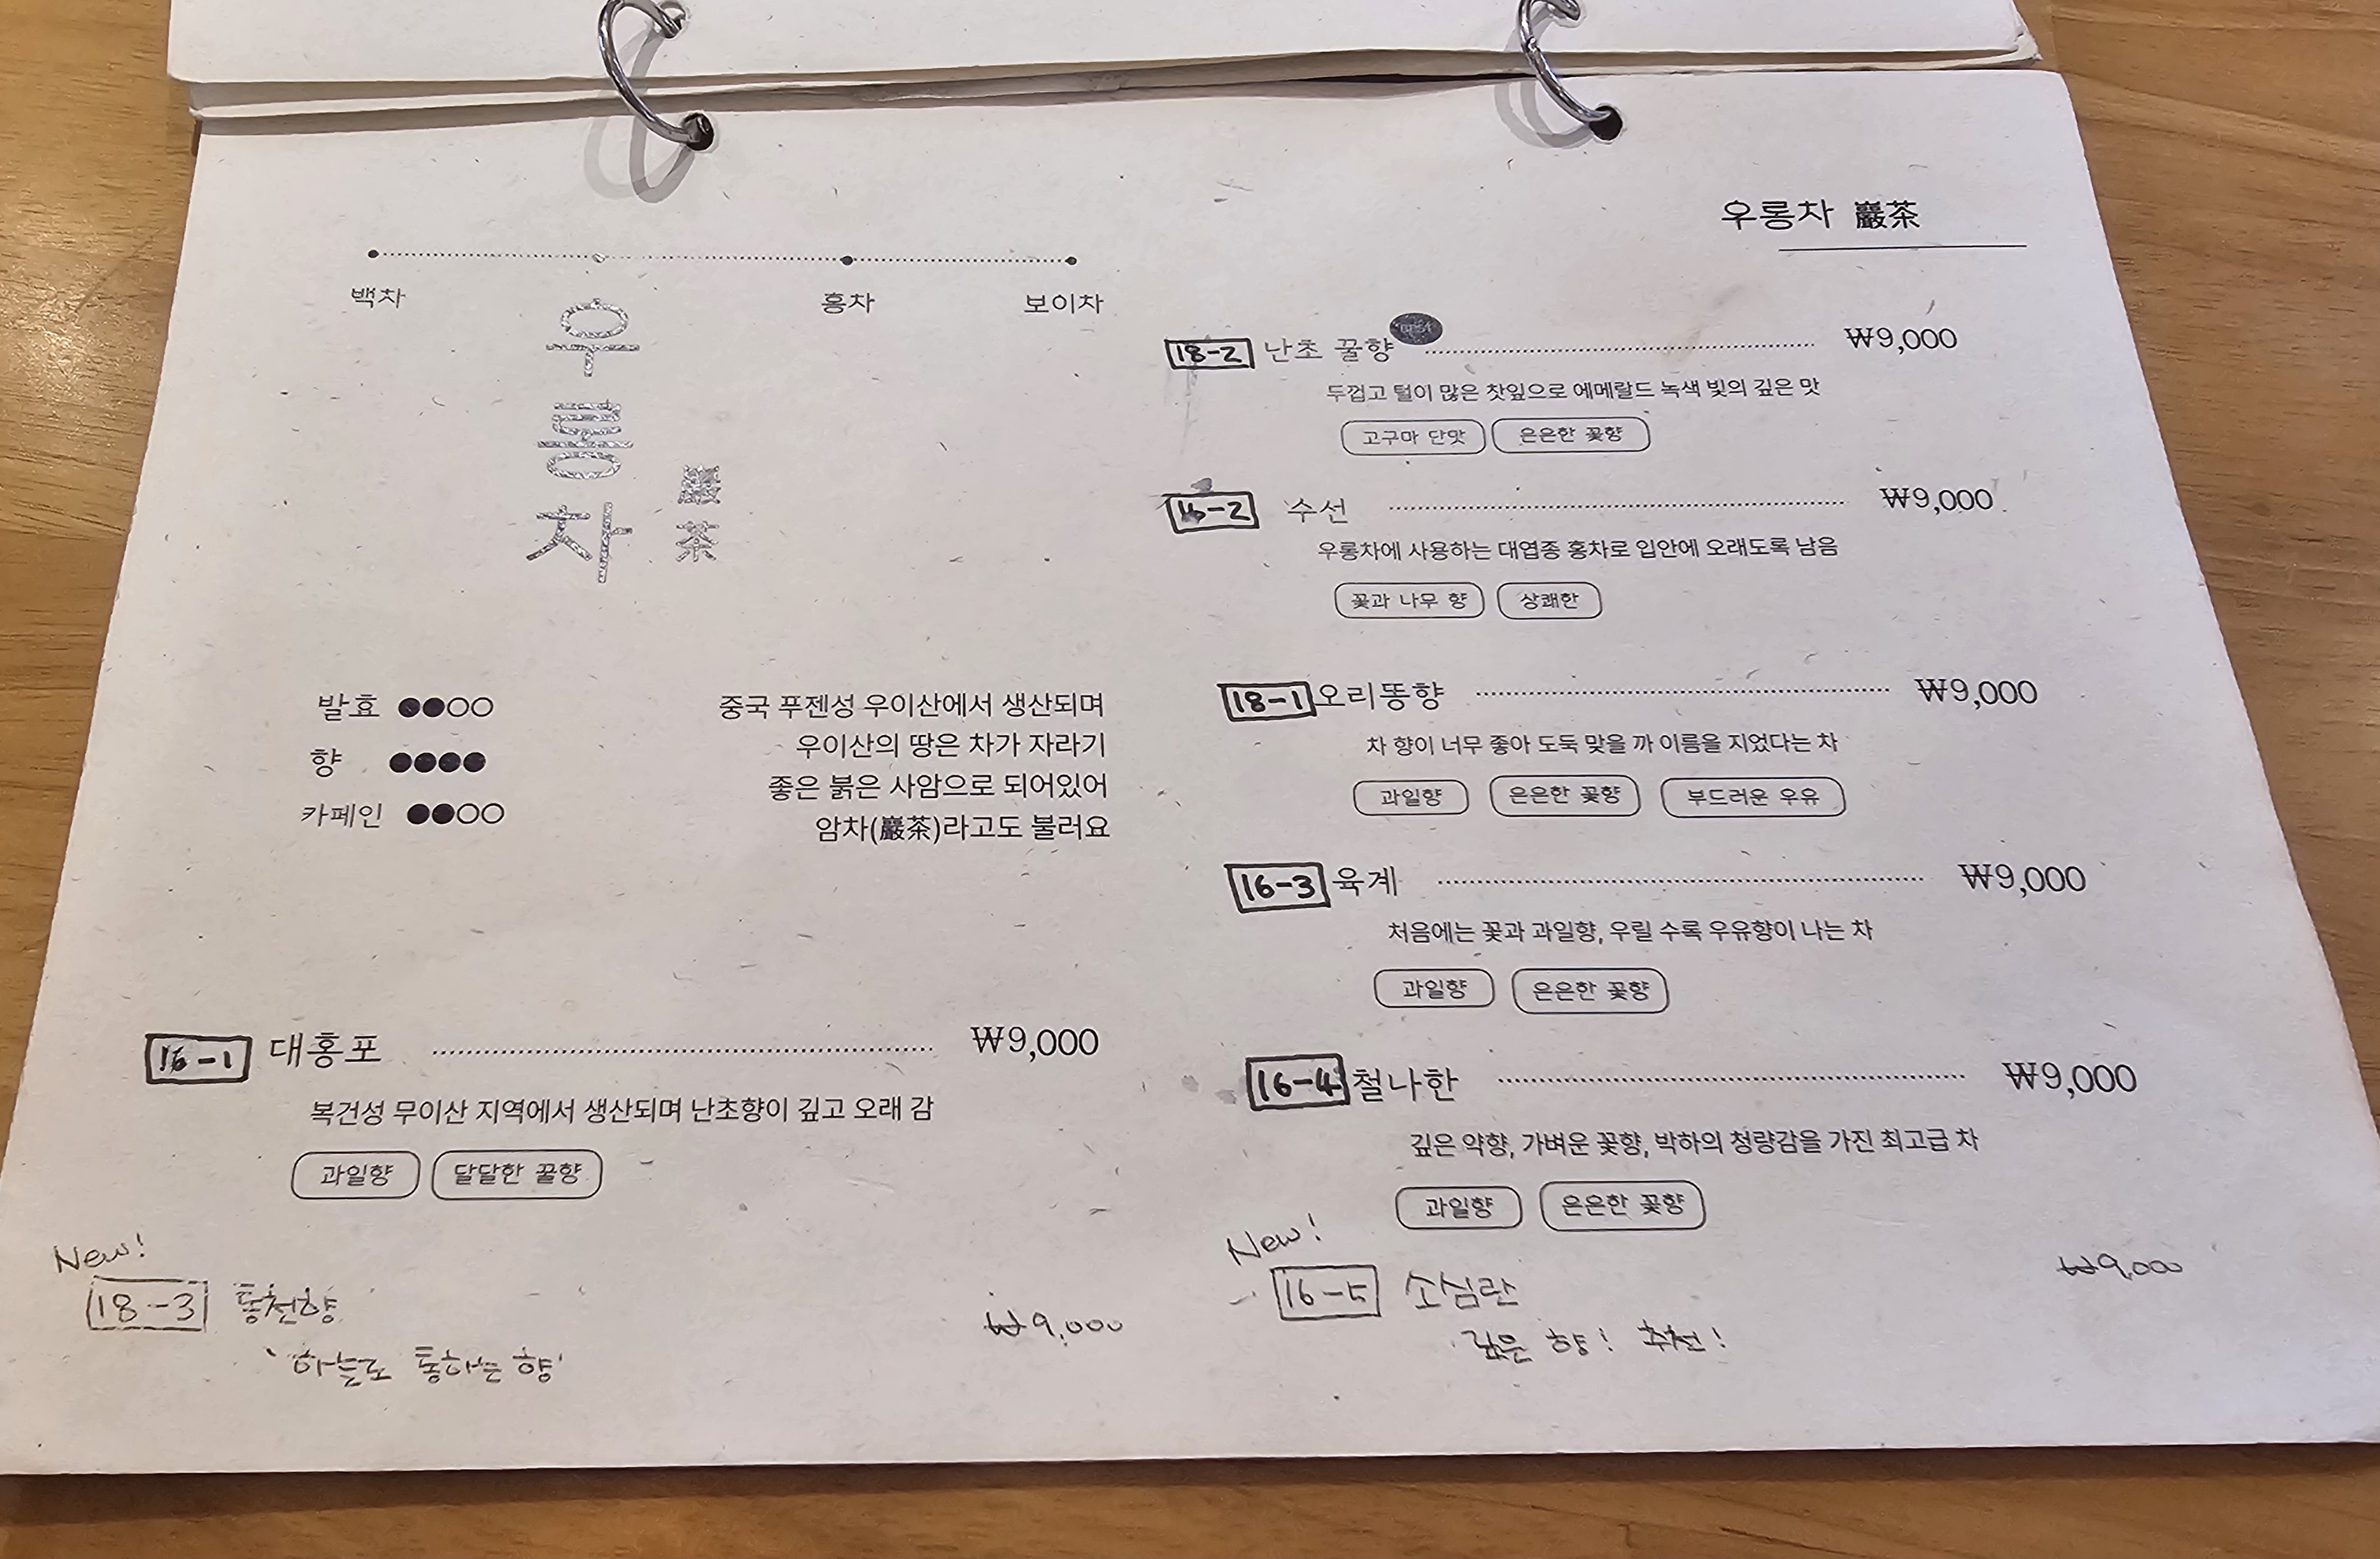 백차
홍차
보이차
우롱차
巖茶
발효
향
카페인
중국 푸젠성 우이산에서 생산되며
우이산의 땅은 차가 자라기
좋은 붉은 사암으로 되어있어
암차(巖茶)라고도 불러요
16-1 대홍포 ₩9,000
복건성 무이산 지역에서 생산되며 난초향이 깊고 오래 감
과일향 달달한 꿀향
New!
18-3 통천향 ₩9,000
하늘로 통하는 향
우롱차 巖茶
18-2 난초 꿀향 BEST ₩9,000
두껍고 털이 많은 찻잎으로 에메랄드 녹색 빛의 깊은 맛
고구마 단맛 은은한 꽃향
16-2 수선 ₩9,000
우롱차에 사용하는 대엽종 홍차로 입안에 오래도록 남음
꽃과 나무 향 상쾌한
18-1 오리똥향 ₩9,000
차 향이 너무 좋아 도둑 맞을 까 이름을 지었다는 차
과일향 은은한 꽃향 부드러운 우유
16-3 육계 ₩9,000
처음에는 꽃과 과일향, 우릴 수록 우유향이 나는 차
과일향 은은한 꽃향
16-4 철나한 ₩9,000
깊은 약향, 가벼운 꽃향, 박하의 청량감을 가진 최고급 차
과일향 은은한 꽃향
New!
16-5 소심란 ₩9,000
깊은 향! 추천!